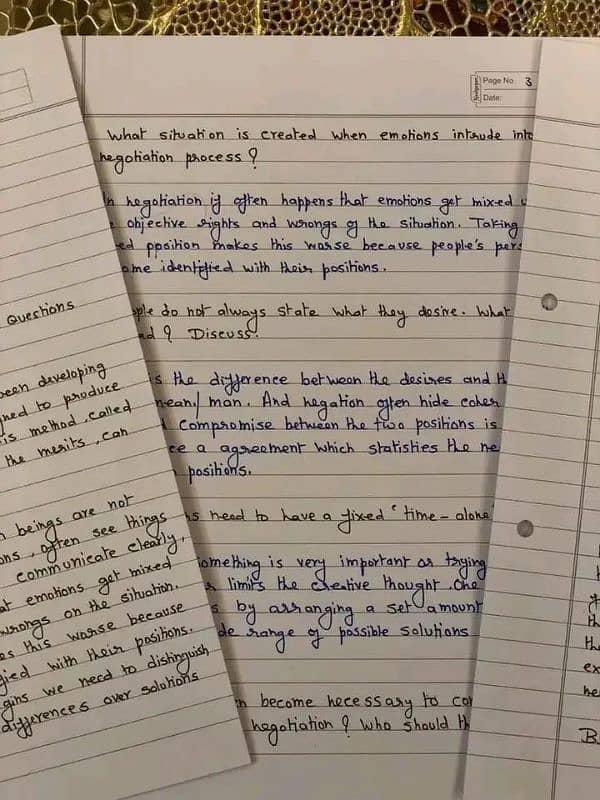 Page No. 3
Date:
What situation is created when emotions intrude
negotiation process ?
negotiation if often happens that emotions get mixed
objective rights and wrongs of the situation. Taking
pposition makes this worse because people's
identified with their positions.
do not always state what they desire. What
? Discuss.
is the difference between the desires and
man. And negation often hide
Compromise between the two positions is
a agreement which statisties the
positions.
need to have a fixed " time - alone
something is very important or trying
limits the creative thought. One
by arranging a set amount
range of possible solutions
become necessary to
negotiation ? Who should
Questions
been developing
to produce
is method, called
the merits, can
beings are not
often see things
communicate clearly,
emotions get mixed
wrongs on the situation.
this worse because
with their positions.
we need to distinguish
differences over solutions